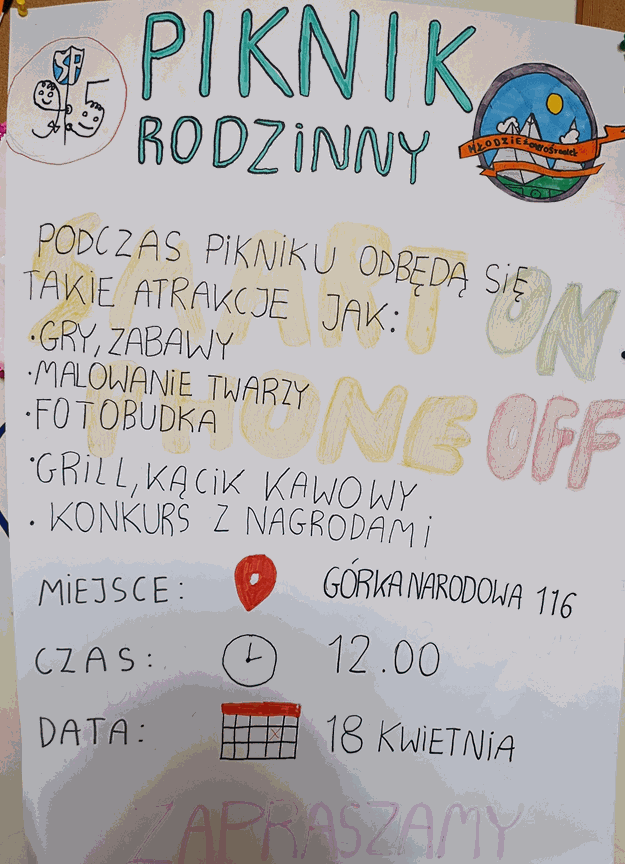 PIKNIK
RODZINNY
SP
95
PODCZAS PIKNIKU ODBĘDĄ SIĘ
TAKIE ATRAKCJE JAK:
·GRY, ZABAWY
·MALOWANIE TWARZY
·FOTOBUDKA
·GRILL, KĄCIK KAWOWY
·KONKURS Z NAGRODAMI
SMART ON
PHONE OFF
MIEJSCE: GÓRKA NARODOWA 116
CZAS: 12.00
DATA: 18 KWIETNIA
ZAPRASZAMY